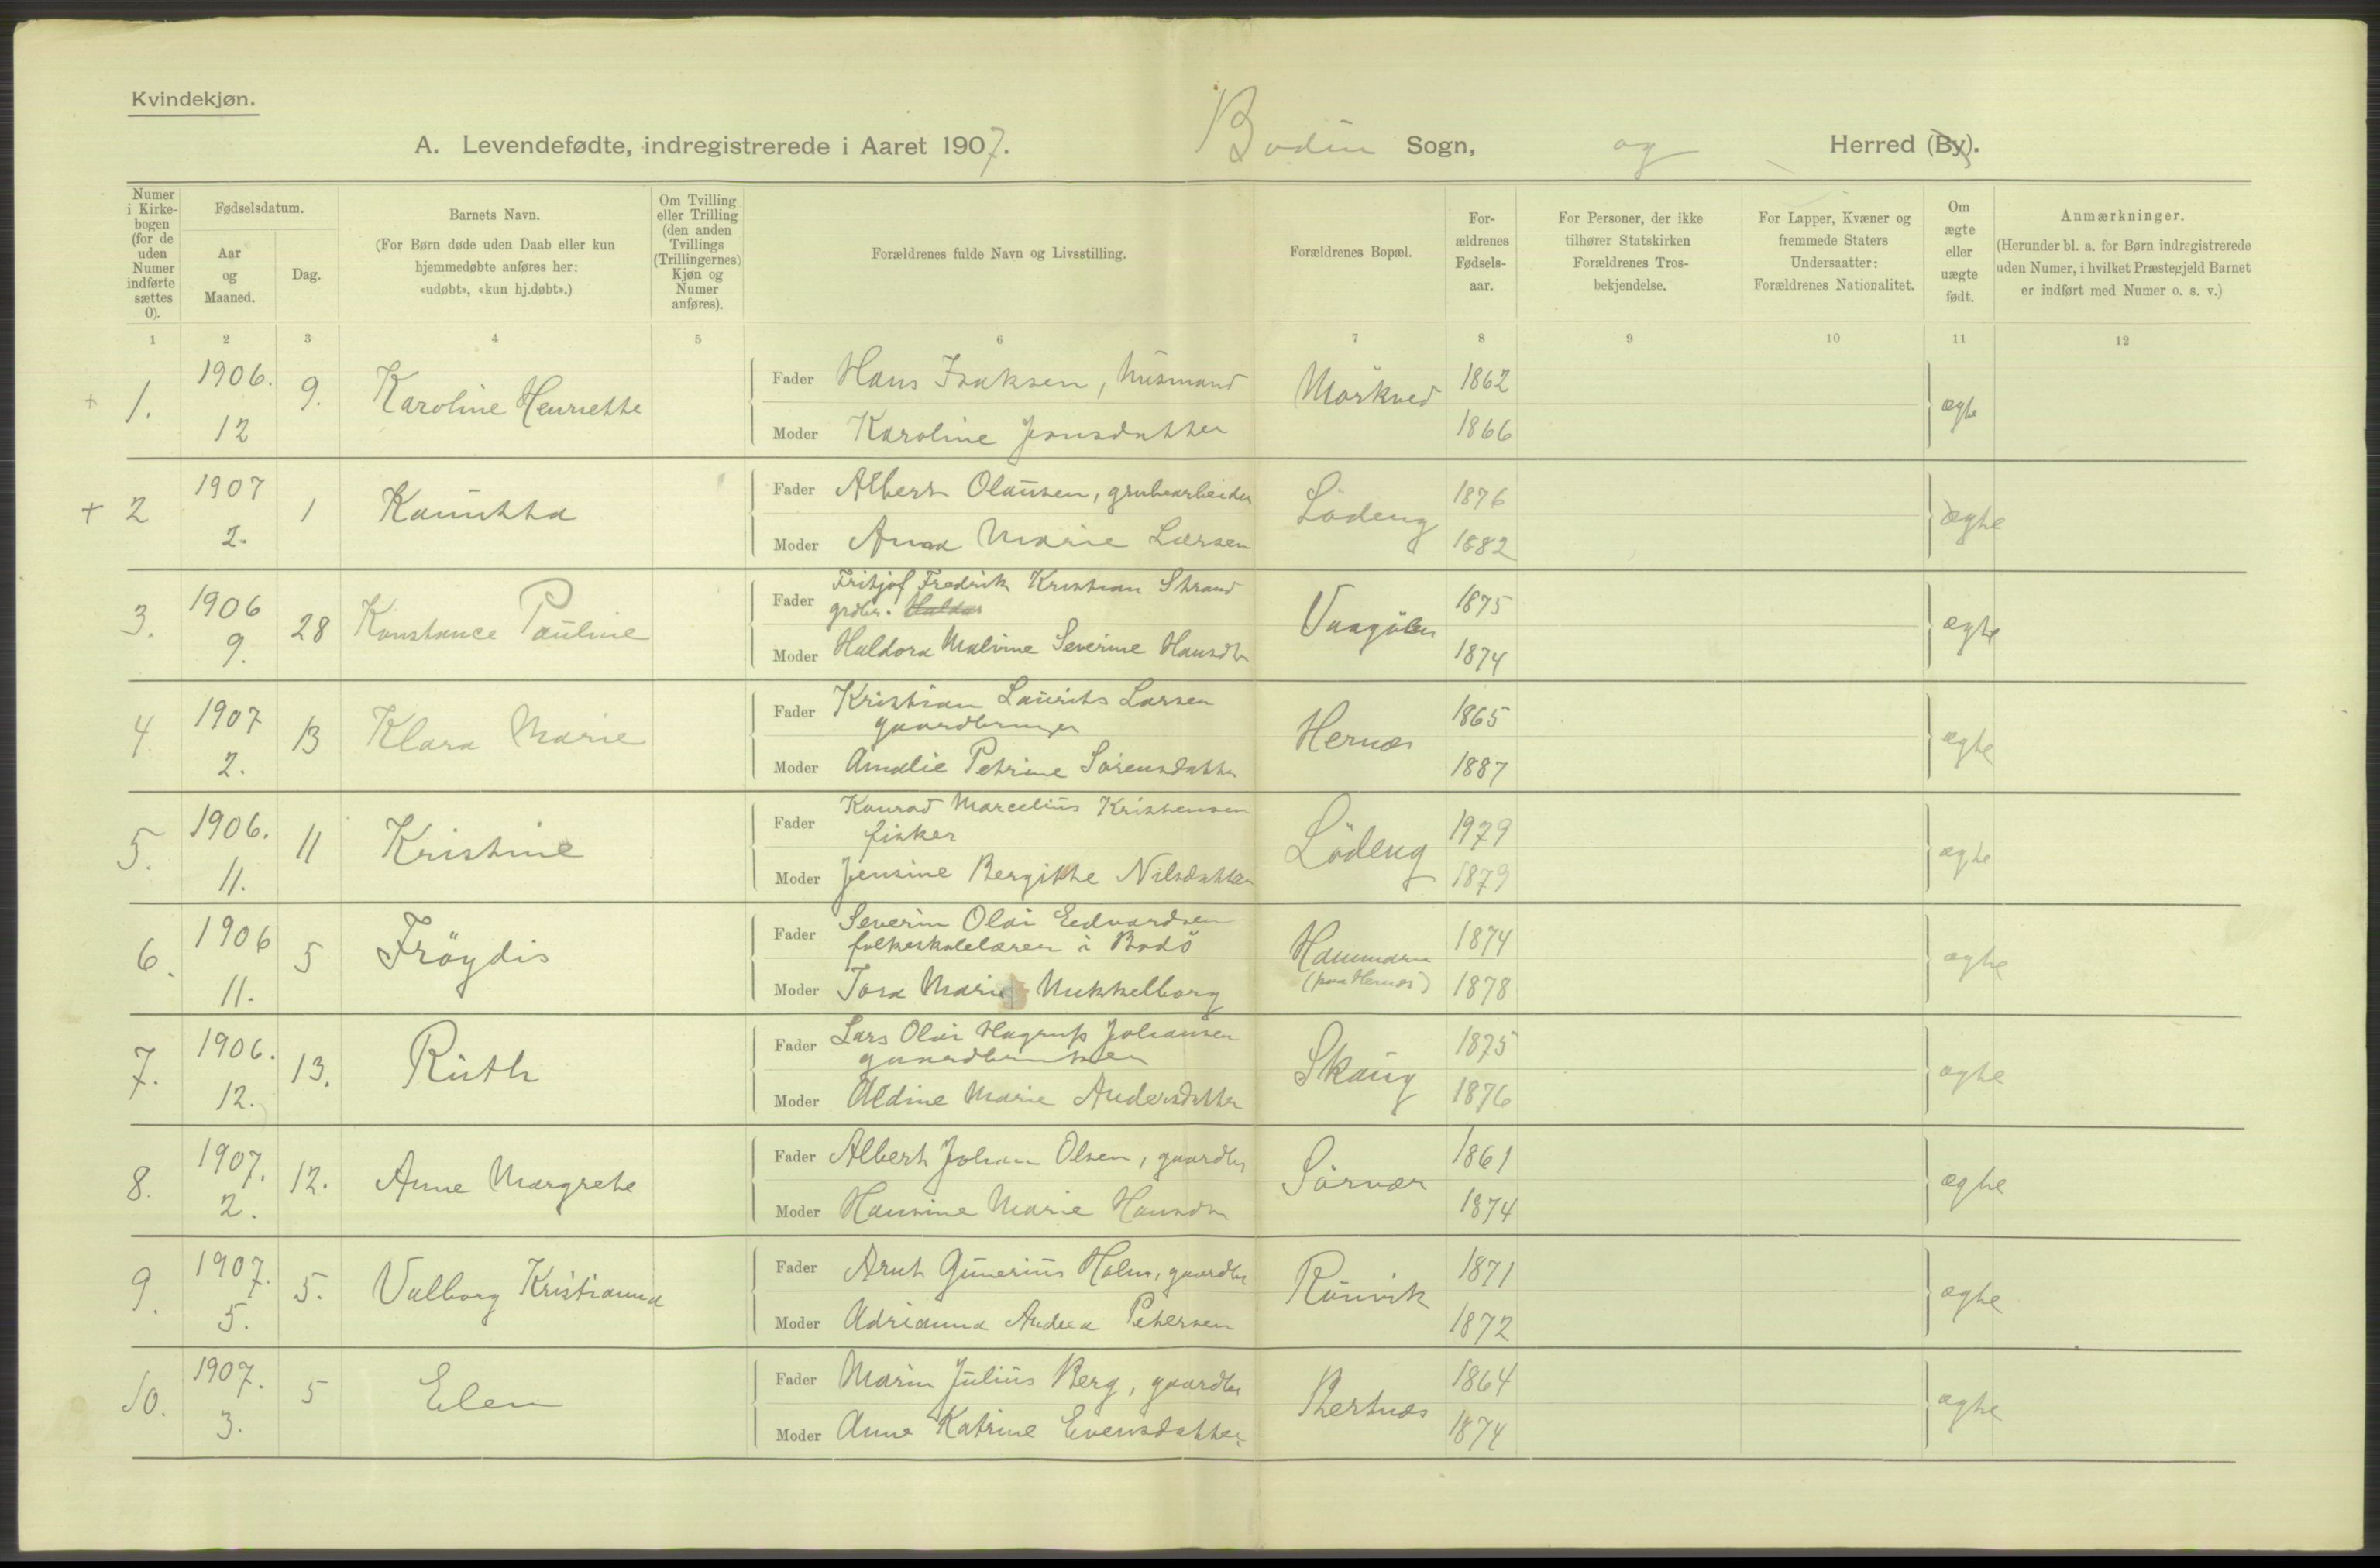 Kvindekjøn.
A. Levendefødte, indregistrerede i Aaret 1907. Bodin Sogn, og Herred (By).
Numer i Kirke-bogen (for de uden Numer indførte sættes 0).
Fødselsdatum.
Aar og Maaned.
Dag.
Barnets Navn.
(For Børn døde uden Daab eller kun hjemmedøbte anføres her: «udøbt», «kun hj.døbt».)
Om Tvilling eller Trilling (den anden Tvillings (Trillingernes) Kjøn og Numer anføres).
Forældrenes fulde Navn og Livsstilling.
Forældrenes Bopæl.
For-ældrenes Fødsels-aar.
For Personer, der ikke tilhører Statskirken Forældrenes Tros-bekjendelse.
For Lapper, Kvæner og fremmede Staters Undersaatter: Forældrenes Nationalitet.
Om ægte eller uægte født.
Anmærkninger.
(Herunder bl. a. for Børn indregistrerede uden Numer, i hvilket Præstegjeld Barnet er indført med Numer o. s. v.)
1 2 3 4 5 6 7 8 9 10 11 12
+ 1. 1906. 12 9. Karoline Henriette
Fader Hans Isaksen, husmand Mörkved 1862 ægte
Moder Karoline Jonsdatter 1866
+ 2 1907 2. 1
Fader Albert Olausen, grubearbeider Löding 1876 ægte
Moder Anna Marie Larsen 1882
3. 1906 9. 28 Konstance Pauline
Fader Fritjof Fredrik Kristian Strand 1875 ægte
grdbr.
Moder Haldora Malvine Severine Hansdtr 1874
4 1907 2. 13 Klara Marie
Fader Kristian Laurits Larsen Hernæs 1865 ægte
gaardbruger
Moder Amalie Petrine Sörensdatter 1887
5. 1906. 11. 11 Kristine
Fader Konrad Marcelius Kristensen Löding 1979 ægte
fisker
Moder Jensine Bergitte Nilsdatter 1879
6. 1906 11. 5 Fröydis
Fader Severin Olai Edvardsen 1874 ægte
folkeskolelærer i Bodö
Moder Tora Marie Mikkelborg (paa Hernæs) 1878
7. 1906. 12. 13. Ruth
Fader Lars Olai Hagrup Johansen Skaug 1875 ægte
gaardbruker
Moder Aldine Marie Andersdatter 1876
8. 1907. 2. 12. Anne Margrete
Fader Albert Johan Olsen, gaardbr Sörvær 1861 ægte
Moder Hansine Marie Hansdtr 1874
9. 1907. 5. 5. Valborg Kristianna
Fader Arnt Gunerius Holm, gaardbr Rönvik 1871 ægte
Moder Adrianna Andrea Petersen 1872
10. 1907. 3. 5 Elen
Fader Marin Julius Berg, gaardbr Bertnæs 1864 ægte
Moder Anne Katrine Evensdatter 1874